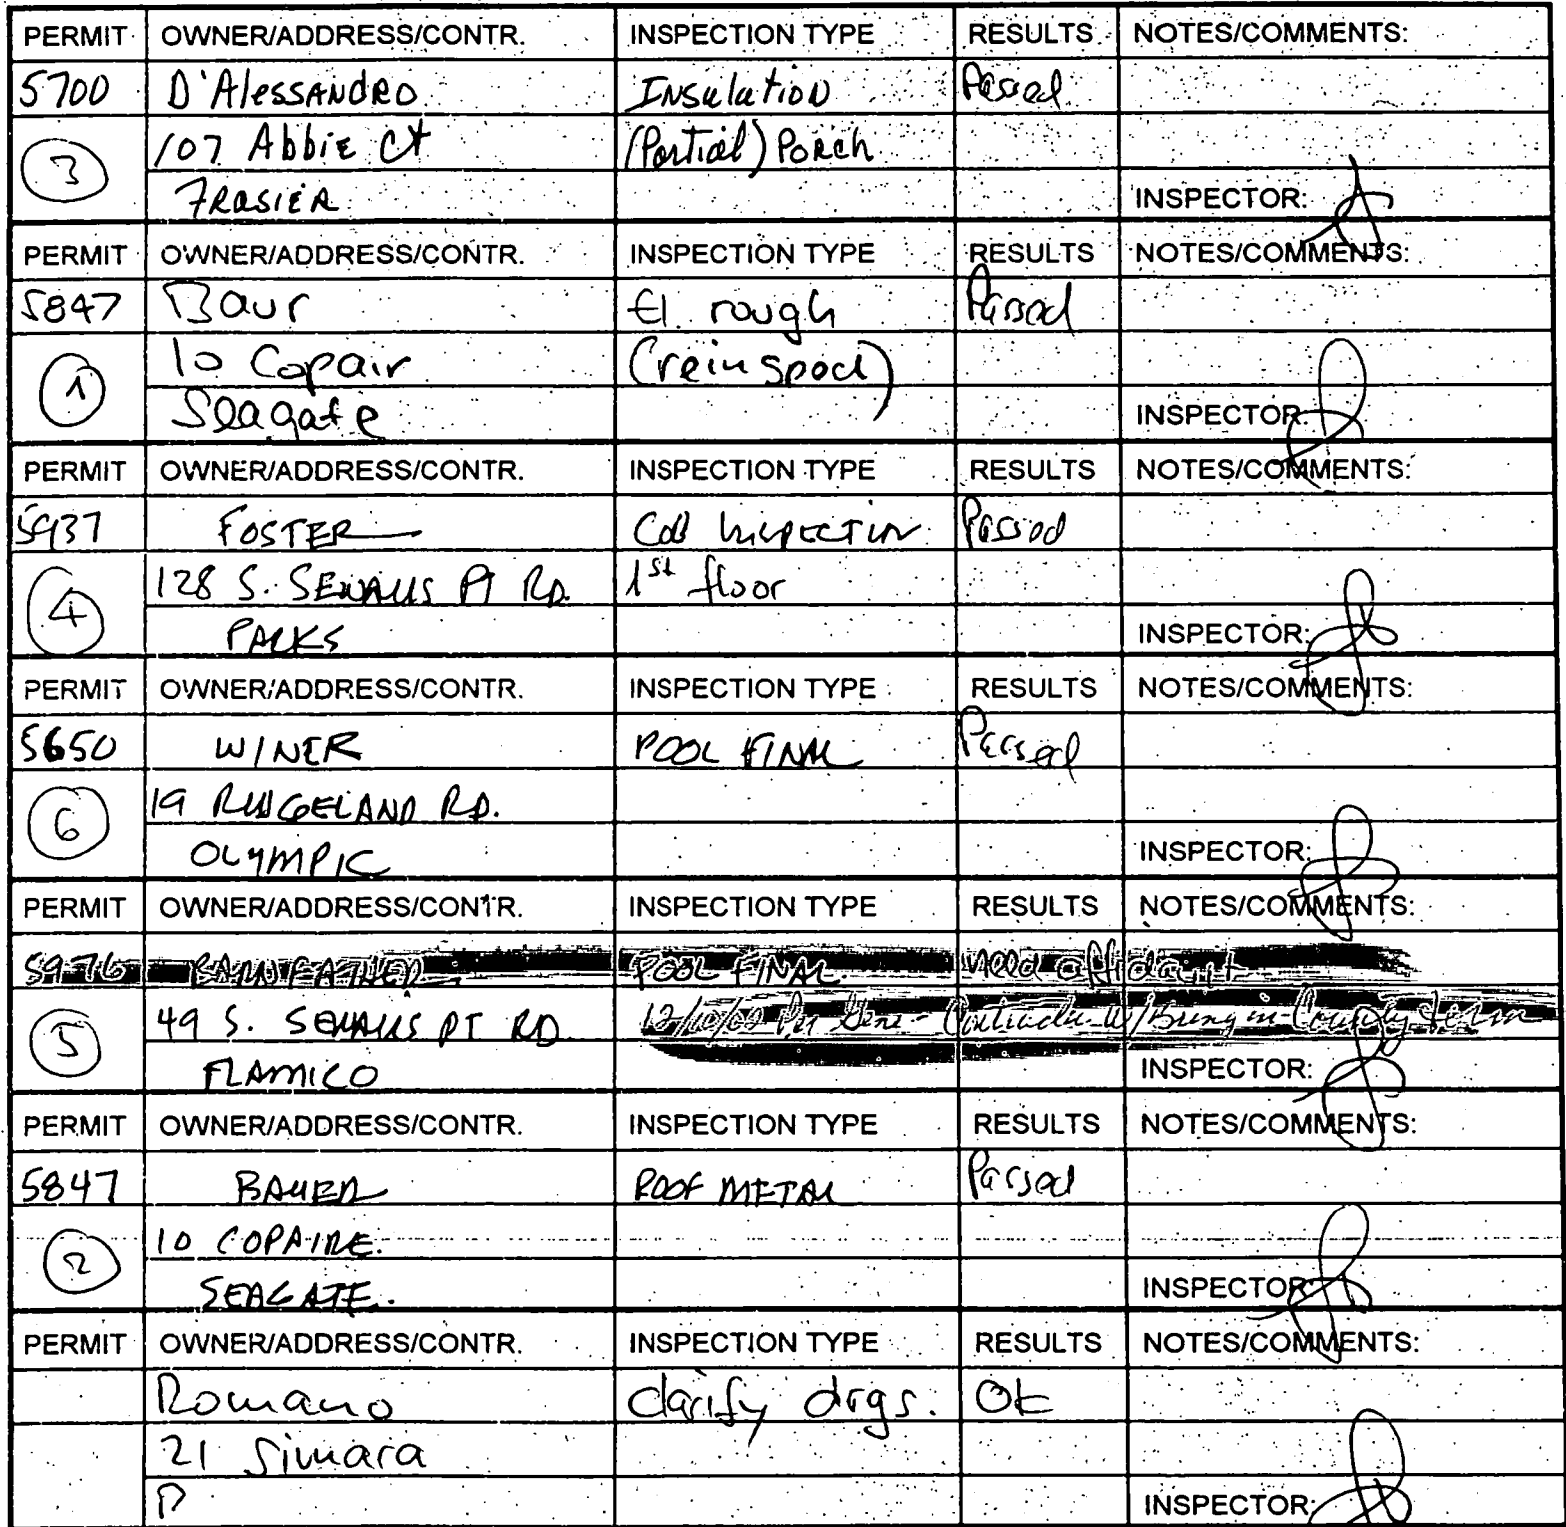 PERMIT OWNER/ADDRESS/CONTR. INSPECTION TYPE RESULTS NOTES/COMMENTS:
5700 D'AlessANDRO INSulatioN Passed
3 107 Abbie Ct (Partial) Porch
FRASIER INSPECTOR:
PERMIT OWNER/ADDRESS/CONTR. INSPECTION TYPE RESULTS NOTES/COMMENTS:
5847 Baur El. rough Passed
1 10 Copair (reinspect)
Seagate INSPECTOR:
PERMIT OWNER/ADDRESS/CONTR. INSPECTION TYPE RESULTS NOTES/COMMENTS:
5937 FOSTER INSPECTION Passed
4 128 S. SEWALLS PT RD. 1st floor
PARKS INSPECTOR:
PERMIT OWNER/ADDRESS/CONTR. INSPECTION TYPE RESULTS NOTES/COMMENTS:
5650 WINER POOL FINAL Passed
6 19 RIDGELAND RD.
OLYMPIC INSPECTOR:
PERMIT OWNER/ADDRESS/CONTR. INSPECTION TYPE RESULTS NOTES/COMMENTS:
5976 POOL FINAL Need affidavit
5 49 S. SEWALLS PT RD Per Gene - W/Bring in County form
FLAMICO INSPECTOR:
PERMIT OWNER/ADDRESS/CONTR. INSPECTION TYPE RESULTS NOTES/COMMENTS:
5847 BAUER ROOF METAL Passed
2 10 COPAIRE.
SEAGATE. INSPECTOR:
PERMIT OWNER/ADDRESS/CONTR. INSPECTION TYPE RESULTS NOTES/COMMENTS:
Romano clarify drgs. Ok
21 Simara
INSPECTOR: